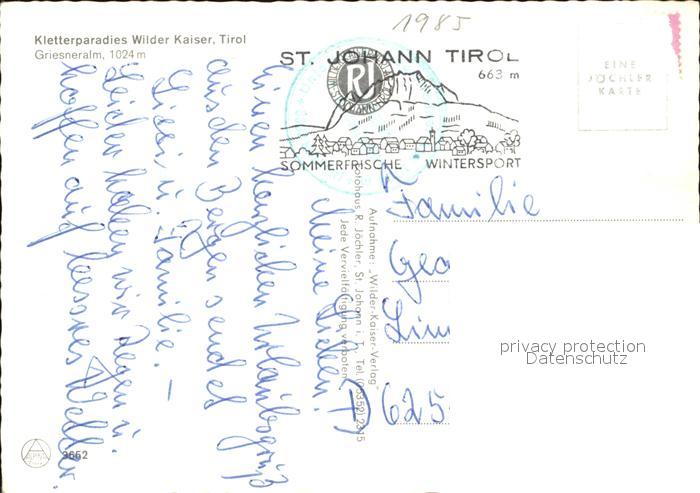 1985
Kletterparadies Wilder Kaiser, Tirol
Griesneralm, 1024 m
ST. JOHANN TIROL
663 m
RI
SOMMERFRISCHE WINTERSPORT
EINE
JÖCHLER
KARTE
Meine Lieben!
Einen herzlichen Urlaubsgruß
aus den Bergen sendet
Gissi u. Familie. –
Leider haben wir Regen u.
hoffen auf besseres Wetter.
Aufnahme: „Wilder-Kaiser-Verlag"
Fotohaus R. Jöchler, St. Johann i. T., Tel. (05352) 2315
Jede Vervielfältigung verboten
Familie
Geo
Lim
D 625
privacy protection
Datenschutz
3662